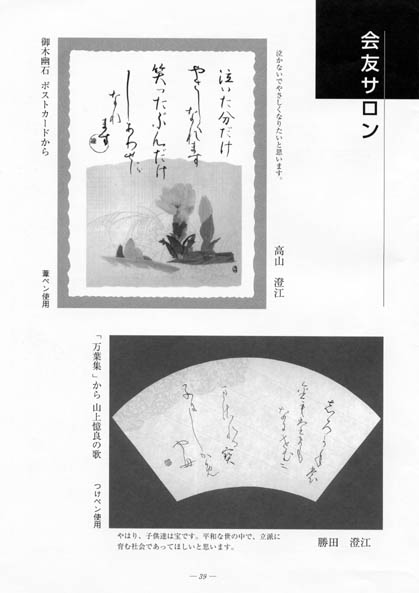 会友サロン
高山　澄江
泣かないでやさしくなりたいと思います。
泣いた分だけ
やさしくなれます
笑ったぶんだけ
しあわせに
なれ
ます
御木幽石　ポストカードから
葦ペン使用
勝田　澄江
「万葉集」から　山上憶良の歌
つけペン使用
やはり、子供達は宝です。平和な世の中で、立派に
育む社会であってほしいと思います。
— 39 —